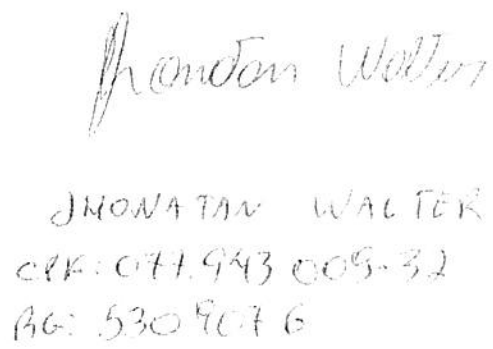 Jhonatan Walter
JHONATAN WALTER
CPF: 077.943 009-32
RG: 5309076